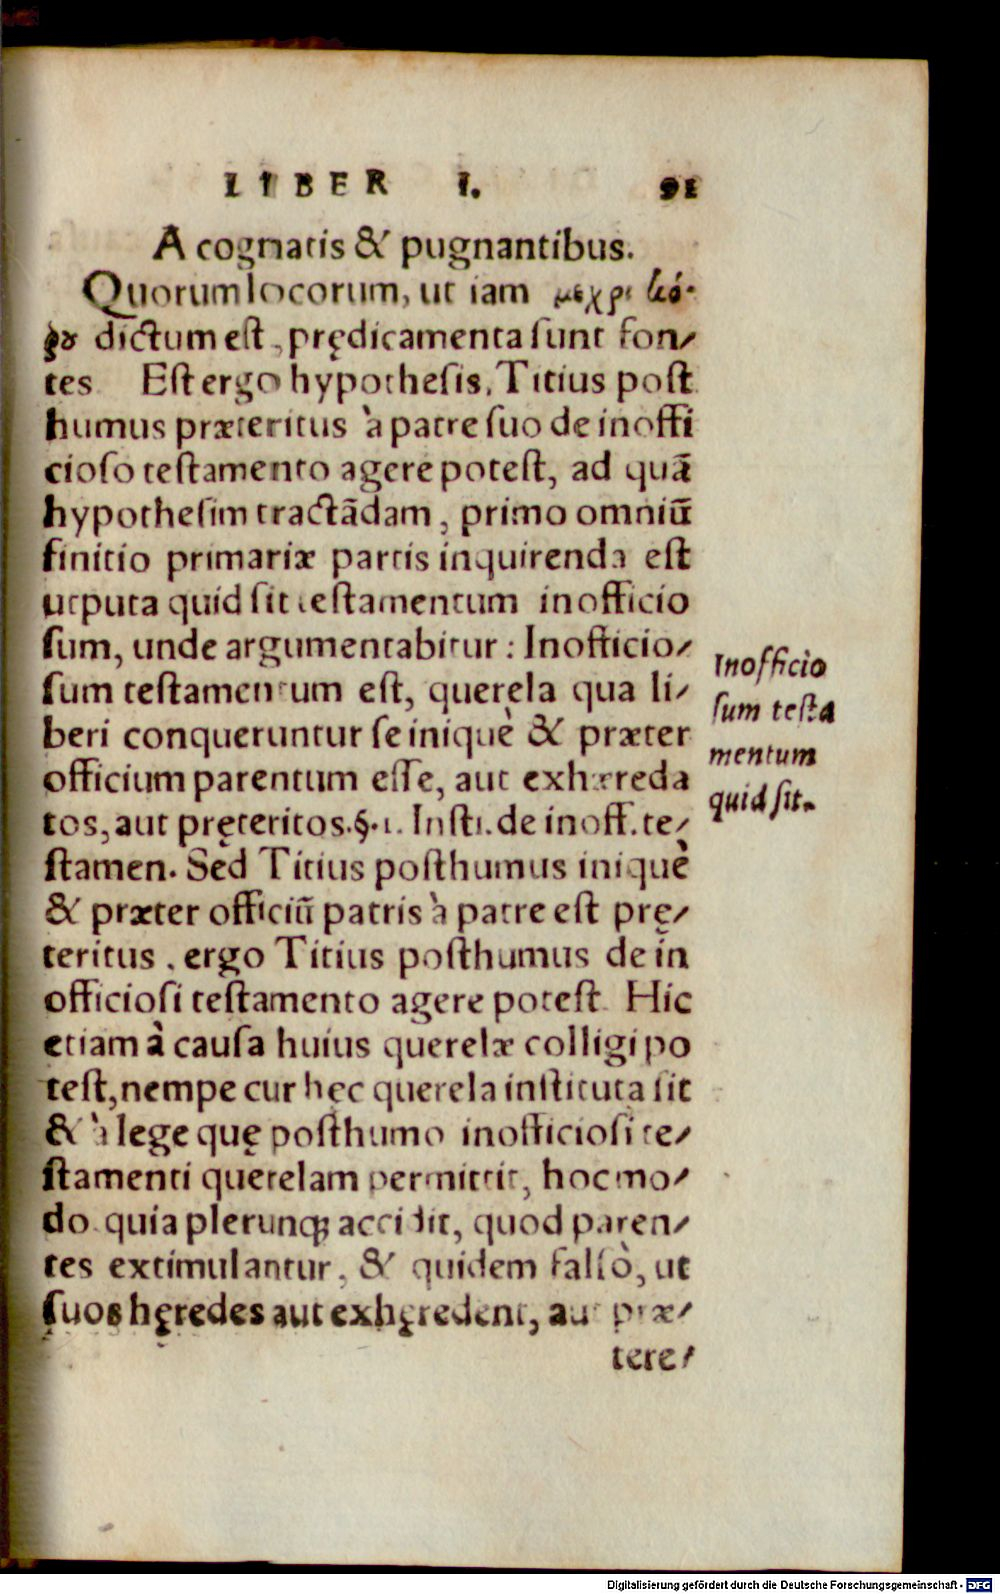 LIBER I. 91
A cognatis & pugnantibus.
Quorum locorum, ut iam μεχρι κό⸗
ρου dictum est, prędicamenta sunt fon⸗
tes Est ergo hypothesis, Titius post
humus præteritus à patre suo de inoffi
cioso testamento agere potest, ad quā
hypothesim tractādam, primo omniū
finitio primariæ partis inquirenda est
utputa quid sit testamentum inofficio
sum, unde argumentabitur: Inofficio⸗
sum testamentum est, querela qua li⸗
beri conqueruntur se iniquè & præter
officium parentum esse, aut exhæreda
tos, aut pręteritos.§.1. Insti. de inoff. te⸗
stamen. Sed Titius posthumus iniquè
& præter officiū patris à patre est prę⸗
teritus. ergo Titius posthumus de in
officiosi testamento agere potest. Hic
etiam à causa huius querelæ colligi po
test, nempe cur hęc querela instituta sit
& à lege quę posthumo inofficiosi te⸗
stamenti querelam permittit, hoc mo⸗
do quia plerunq; accidit, quod paren⸗
tes extimulantur, & quidem falsò, ut
suos hęredes aut exhęredent, aut præ⸗
tere⸗
Inofficio
sum testa
mentum
quid sit.
Digitalisierung gefördert durch die Deutsche Forschungsgemeinschaft - DFG